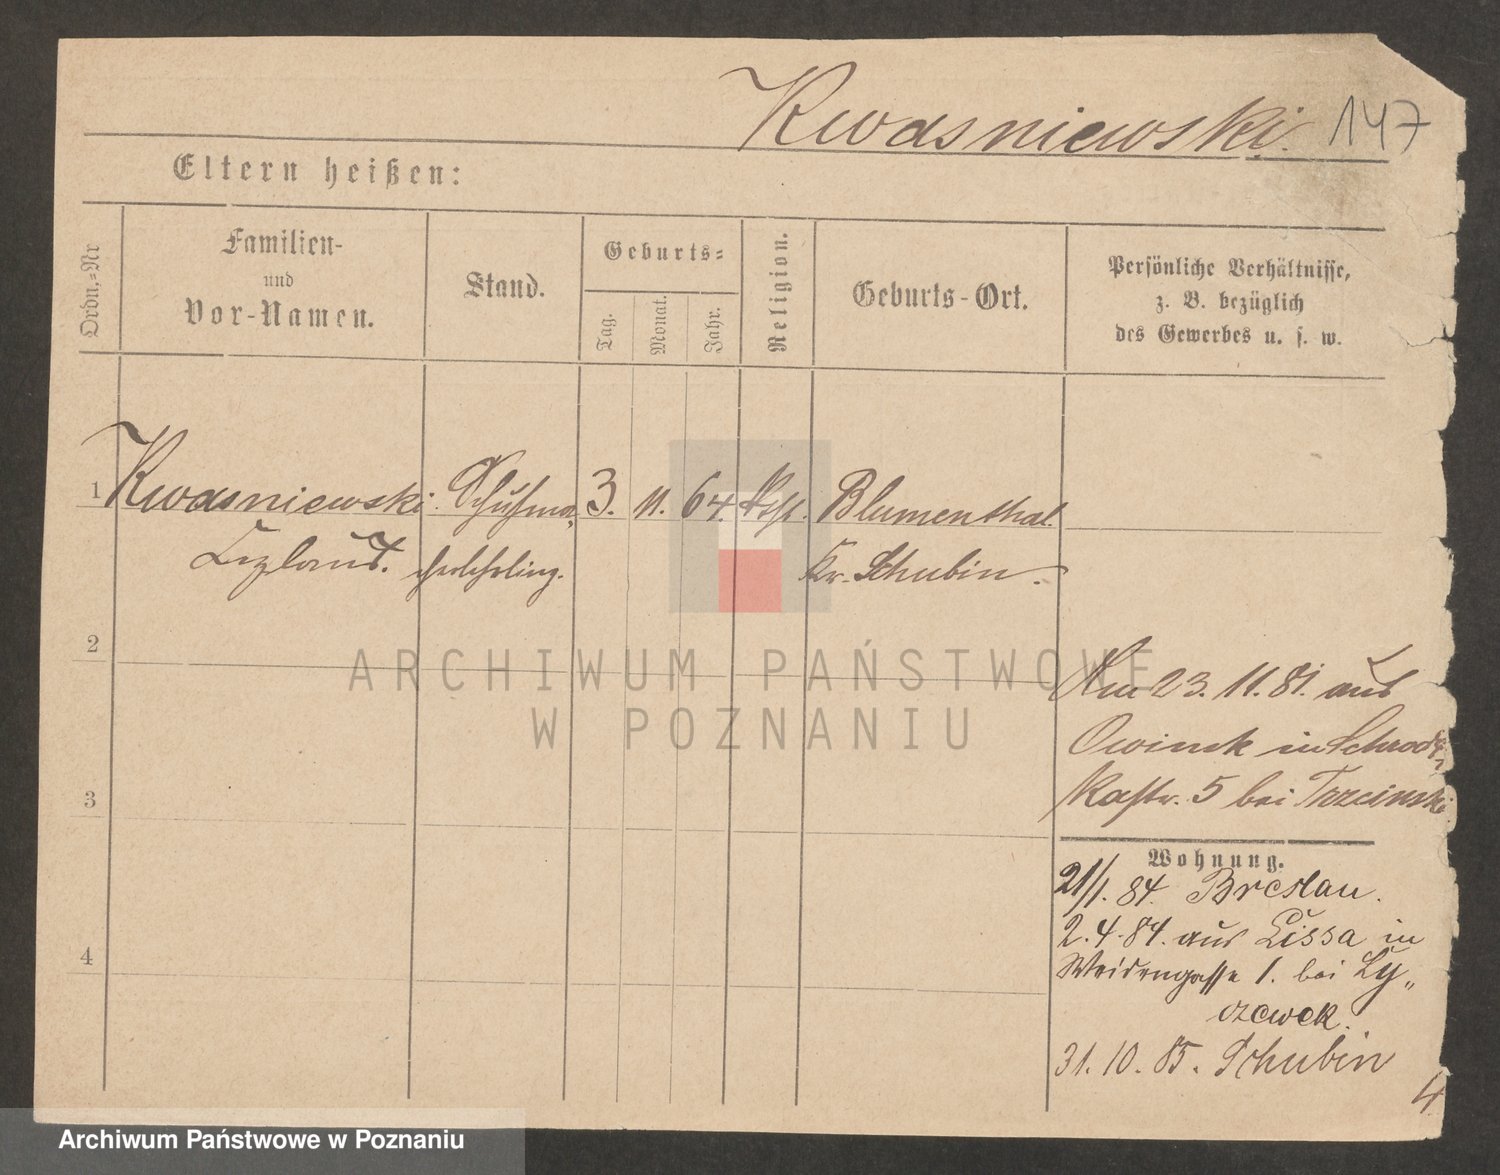 Kwasniewski. 147
Eltern heißen:
Ordn.-Nr
Familien-
und
Vor-Namen.
Stand.
Geburts-
Tag.
Monat.
Jahr.
Religion.
Geburts-Ort.
Persönliche Verhältnisse,
z. B. bezüglich
des Gewerbes u. s. w.
1 Kwasniewski. Schuhma- 3. 11. 64. Blumenthal.
cherlehrling. Kr. Schubin.
2
Am 23. 11. 81. aus
Owinsk in Schrod-
kastr. 5 bei Trzcinski
3
Wohnung.
21/1. 84. Breslau.
2. 4. 84. aus Lissa in
Weidengasse 1. bei Ly„
czewek.
31. 10. 85. Schubin
4
4
ARCHIWUM PAŃSTWOWE
W POZNANIU
Archiwum Państwowe w Poznaniu